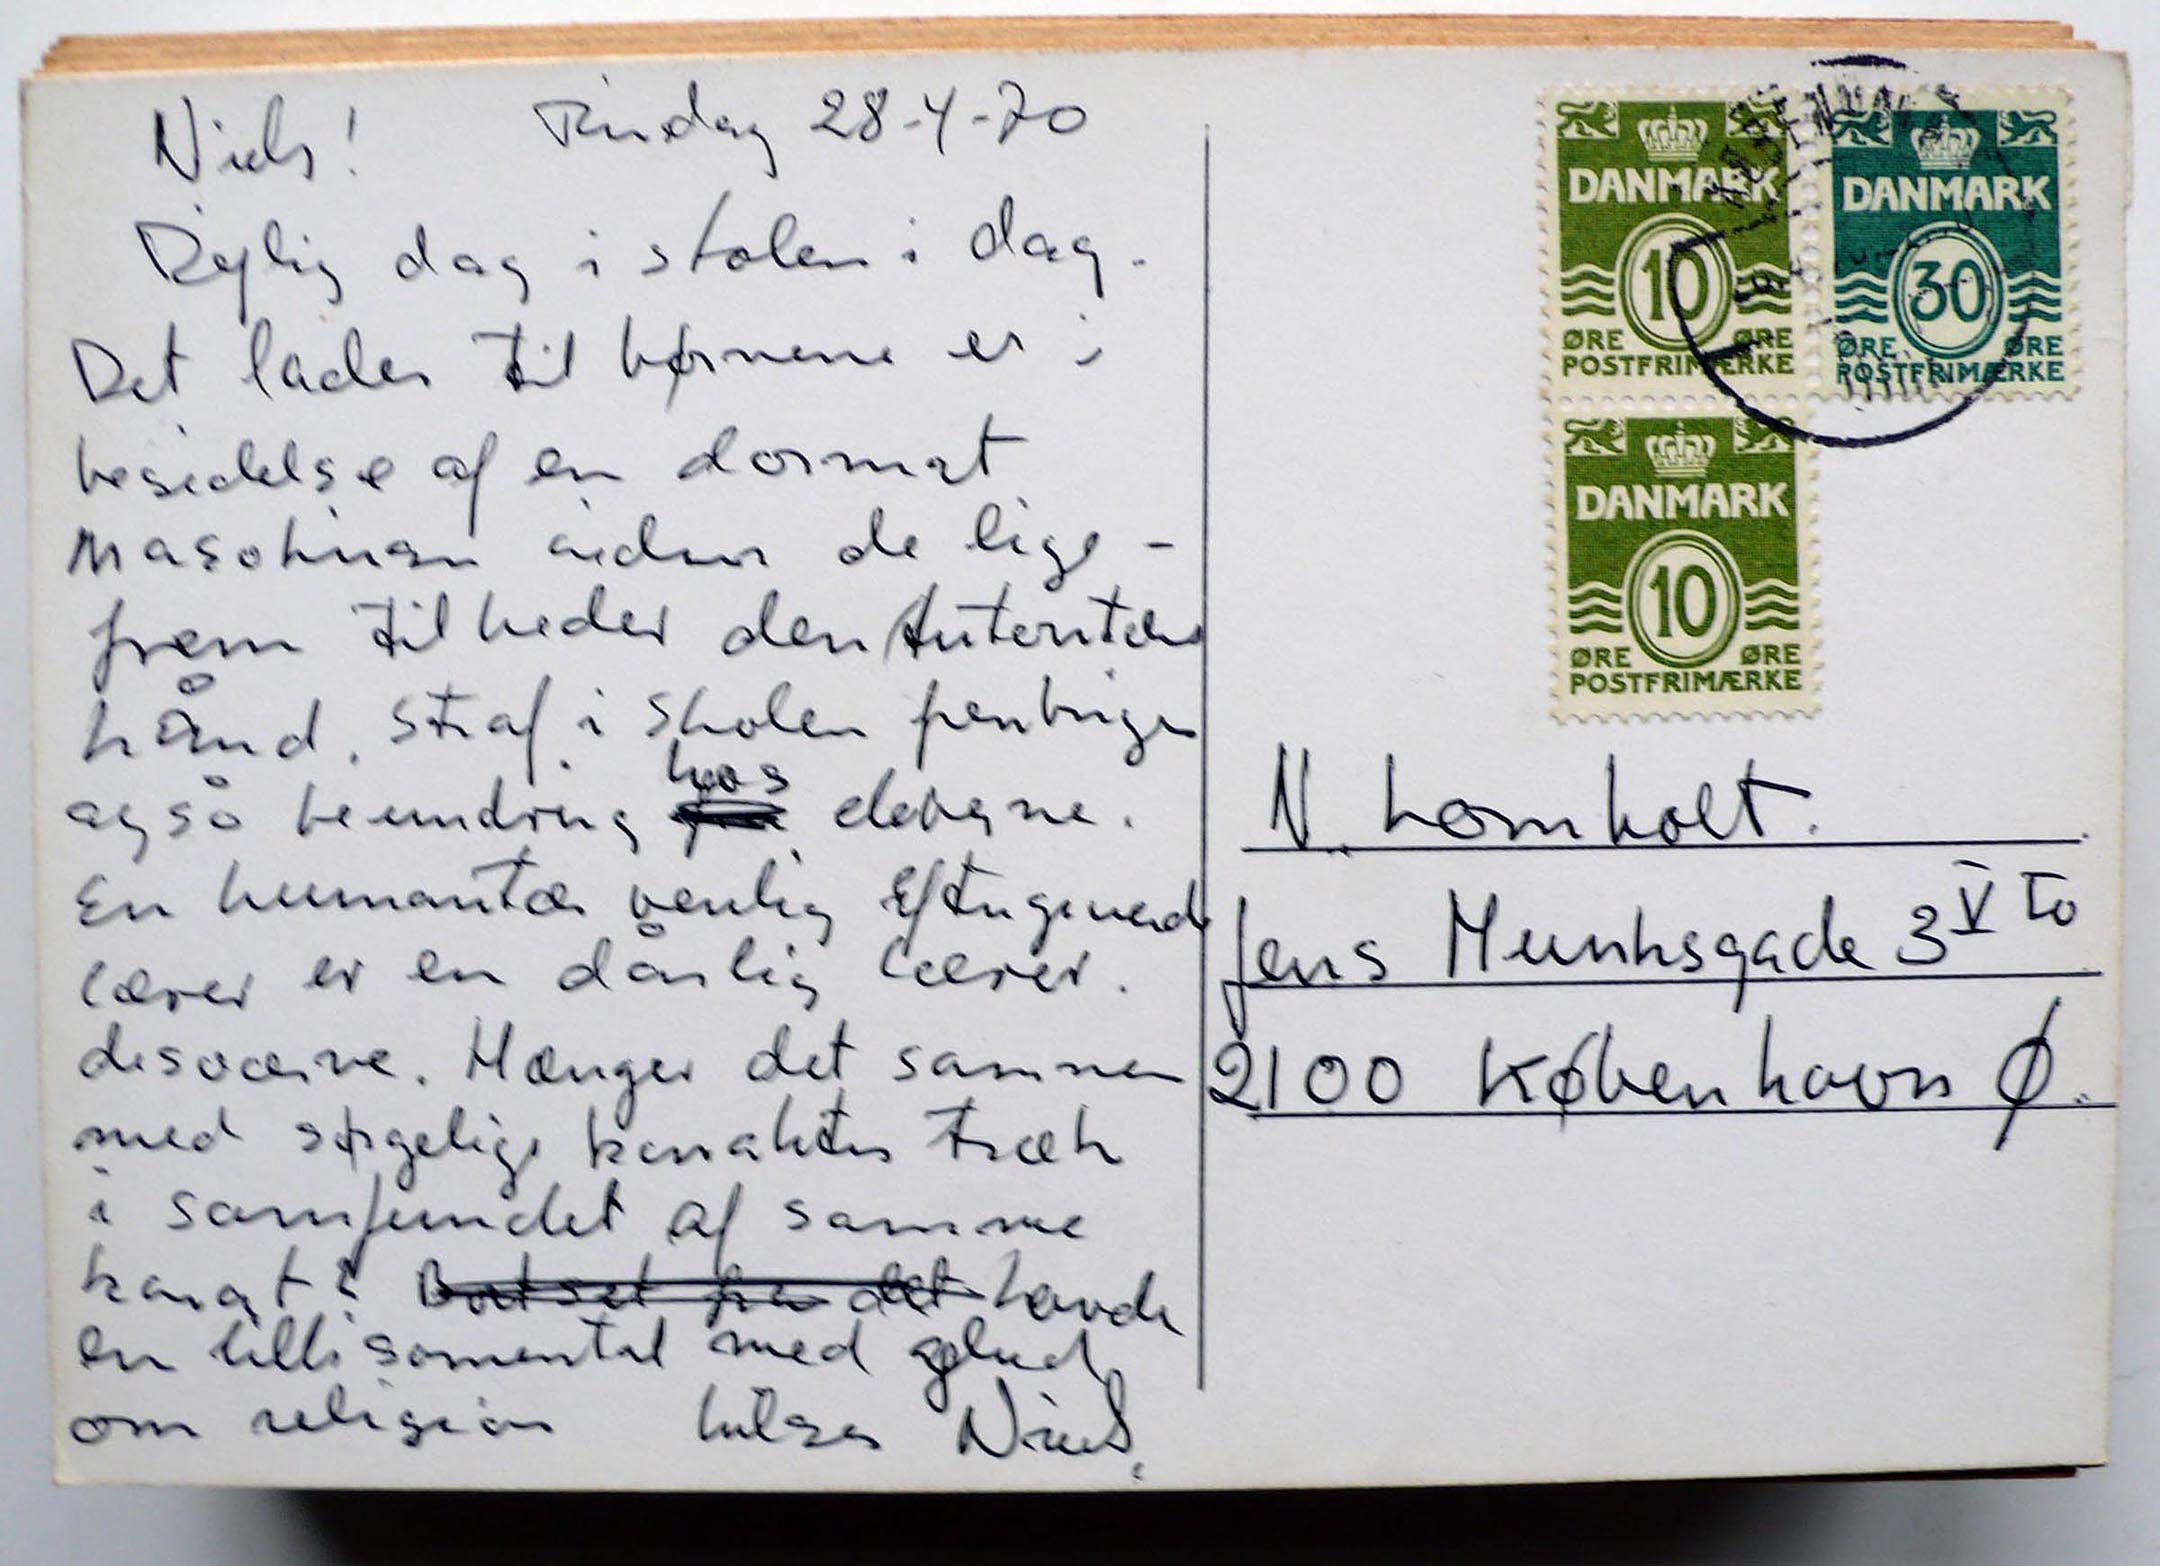 Niels! Tirsdag 28-4-70
Dejlig dag i skolen i dag.
Det lader til børnene er i
besidelse af en dormat
Masokisen siden de lige-
frem tilbeder den Autoritære
hånd. Straf i skolen frembringer
også beundring hos eleverne.
En humanitær venlig Eftergivende
lærer er en dårlig lærer.
desværre. Hænger det sammen
med sørgelige karakter træk
i samfundet af samme
karat? Bortset fra det havde
en lille samental med Glud
om religion hilsen Niels.
DANMARK
10
ØRE ØRE
POSTFRIMÆRKE
DANMARK
30
ØRE ØRE
POSTFRIMÆRKE
DANMARK
10
ØRE ØRE
POSTFRIMÆRKE
N. Lomholt.
Jens Munksgade 3 V to
2100 København Ø.